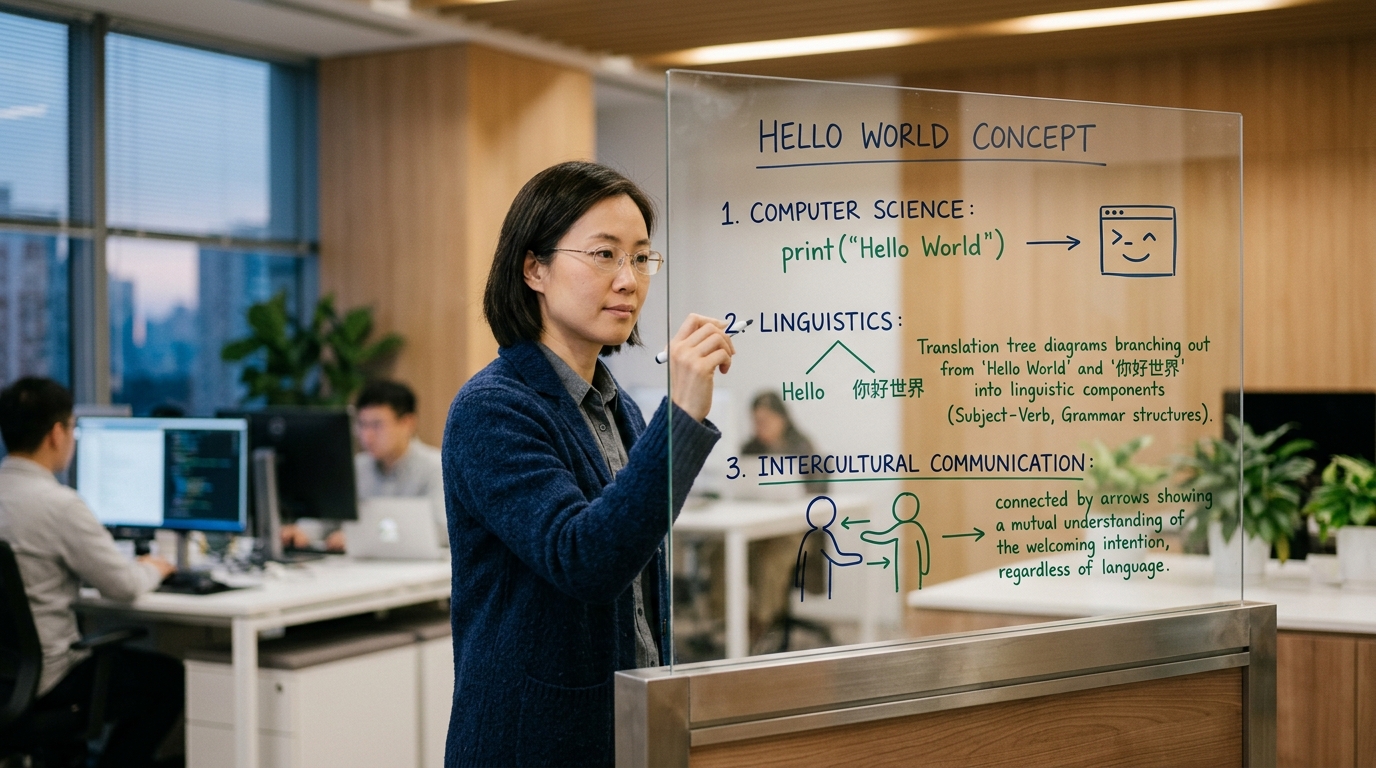 HELLO WORLD CONCEPT
1. COMPUTER SCIENCE:
print("Hello World")
2. LINGUISTICS:
Hello 你好世界
Translation tree diagrams branching out
from 'Hello World' and '你好世界'
into linguistic components
(Subject-Verb, Grammar structures).
3. INTERCULTURAL COMMUNICATION:
connected by arrows showing
a mutual understanding of
the welcoming intention,
regardless of language.